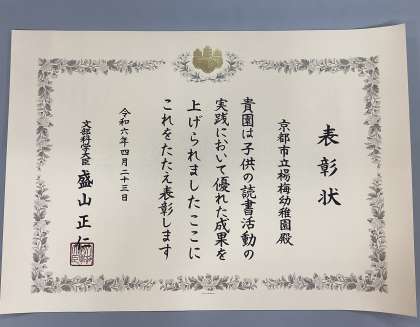 表彰状
京都市立楊梅幼稚園殿
貴園は子供の読書活動の
実践において優れた成果を
上げられましたここに
これをたたえ表彰します
令和六年四月二十三日
文部科学大臣 盛山正仁